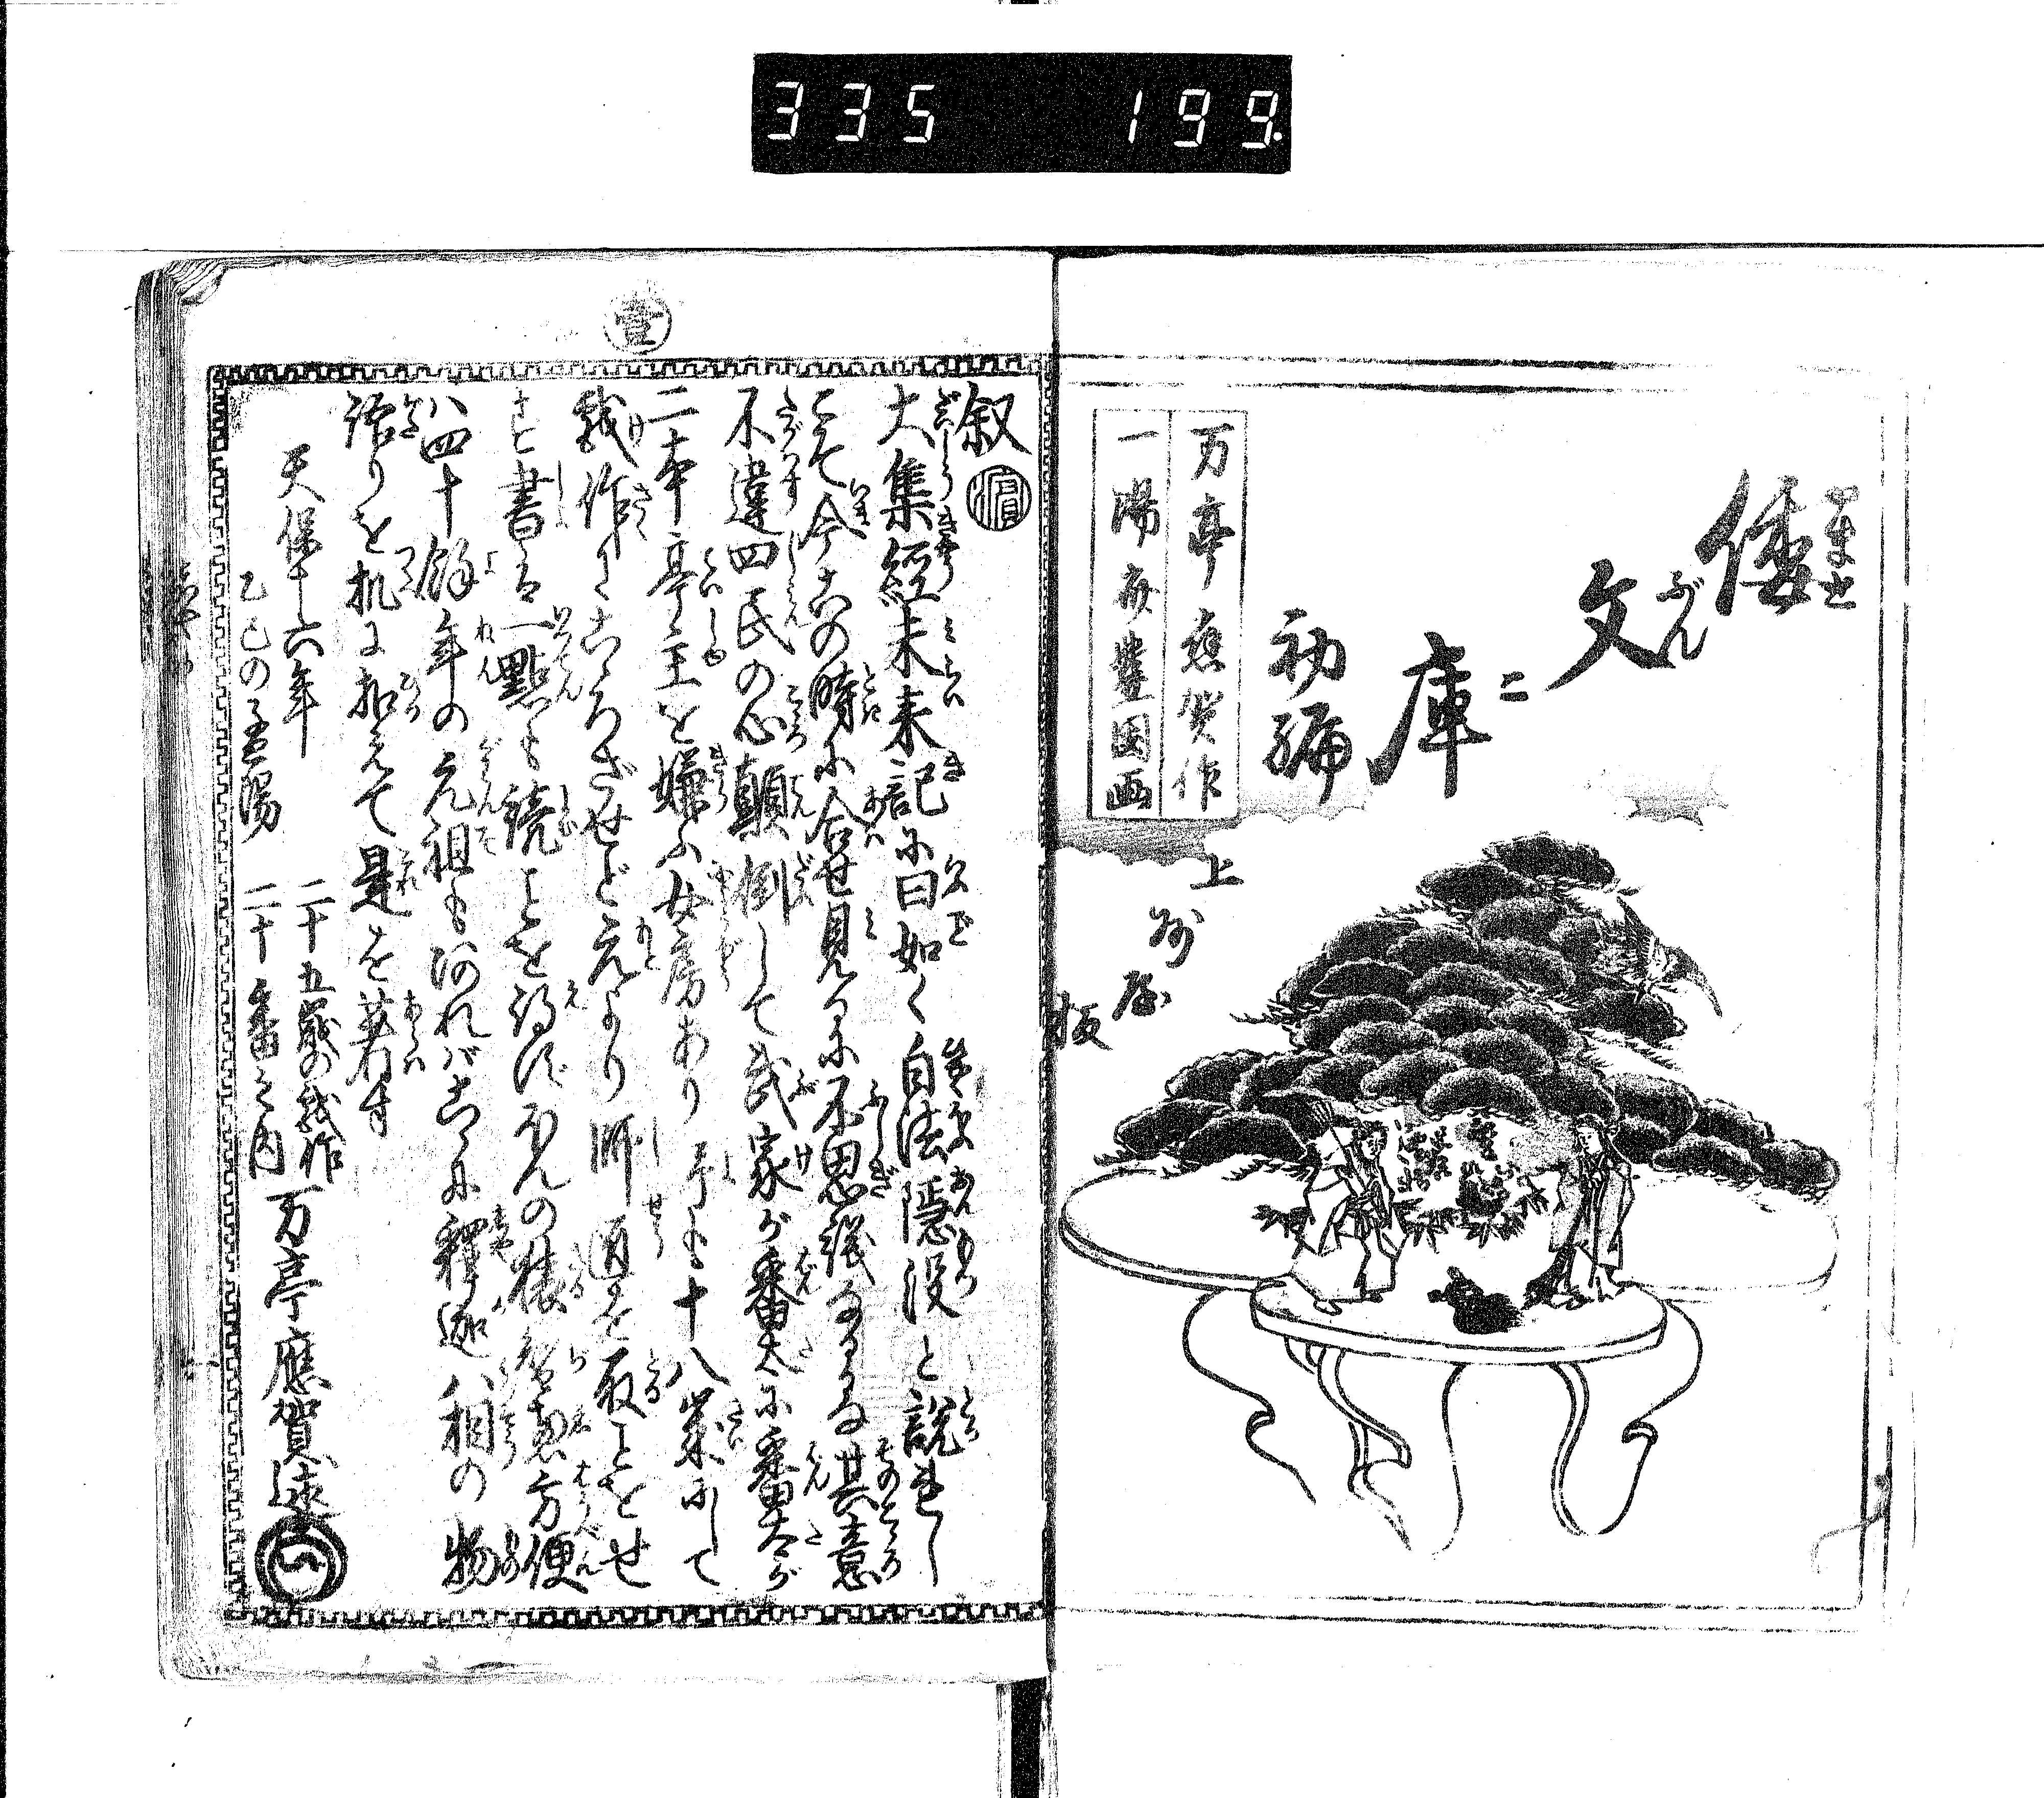 335 199
倭
やまと
文
ぶん
庫
こ
初編
万亭應賀作
一陽斎豊国画
上州屋
板
壹
叙
大集經未来記に曰如く白法隠没と説玉ひし
こそ今あの時に合せ見るに不思議なるかな其意
不違四民の心顛倒して武家が番太に番太が
二本亭主を嫌ふ女房あり予も十八歳にして
戯作にこゝろざせど元より師匠を取ことをせ
書は一點も読ことを得ず
八四十餘年の元祖もあればこゝに釋迦八相の物
語りを机に扣えて是を著す
天保十六年
乙巳の孟陽
二十五歳の戯作
二十番之内
万亭應賀述